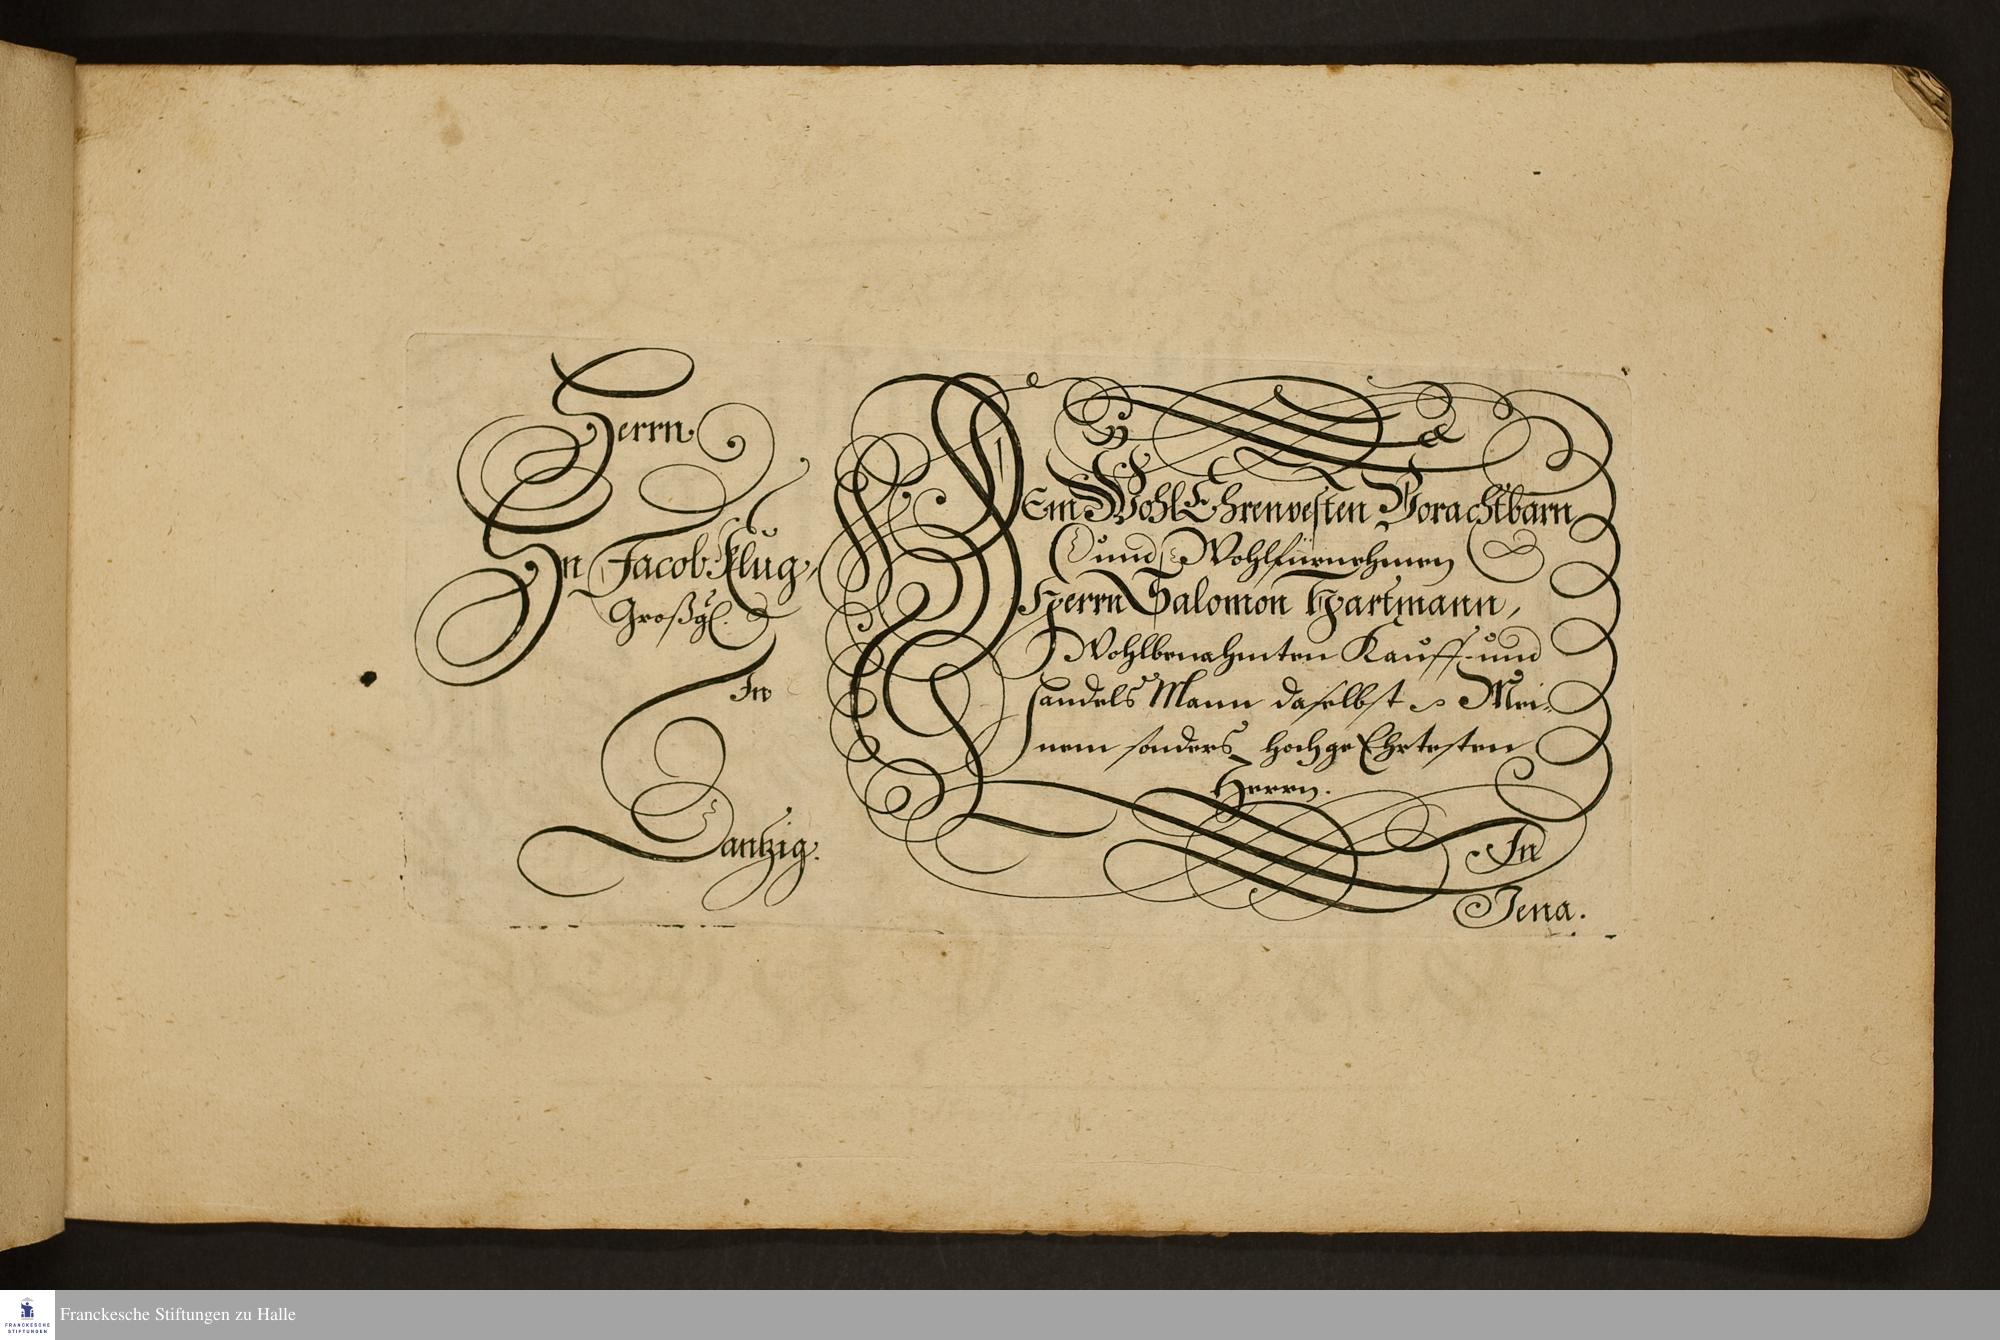 Herrn
Hn Jacob Klug,
Großgl.
In
Dantzig.
DEm WohlEhrenvesten Vorachtbarn
und Wohlfürnehmen
Herrn Salomon Hartmann,
Wohlbenahmten Kauff- und
Handels Mann daselbst Mei-
nem sonders hochgeEhrtesten
Herrn.
In
Jena.
FRANCKESCHE
STIFTUNGEN
Franckesche Stiftungen zu Halle